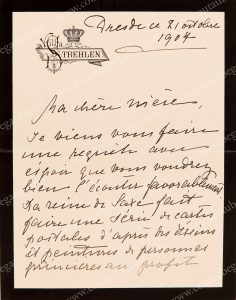 Villa
STREHLEN
Dresde ce 21 octobre
1904
Ma chère nièce,
Je viens vous faire
une requête avec
espoir que vous voudrez
bien l'écouter favorablement
La reine de Saxe fait
faire une série de cartes
postales d'après des dessins
et peintures de personnes
princières au profit